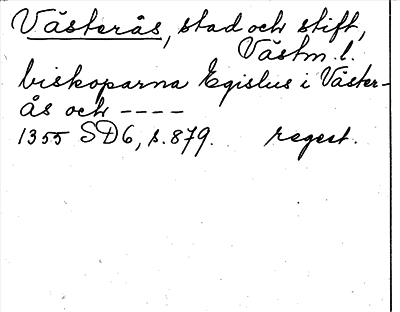 Västerås, stad och stift,
Västm. l.
biskoparna Egislus i Väster-
ås och ----
1355 SD6, s.879. regest.